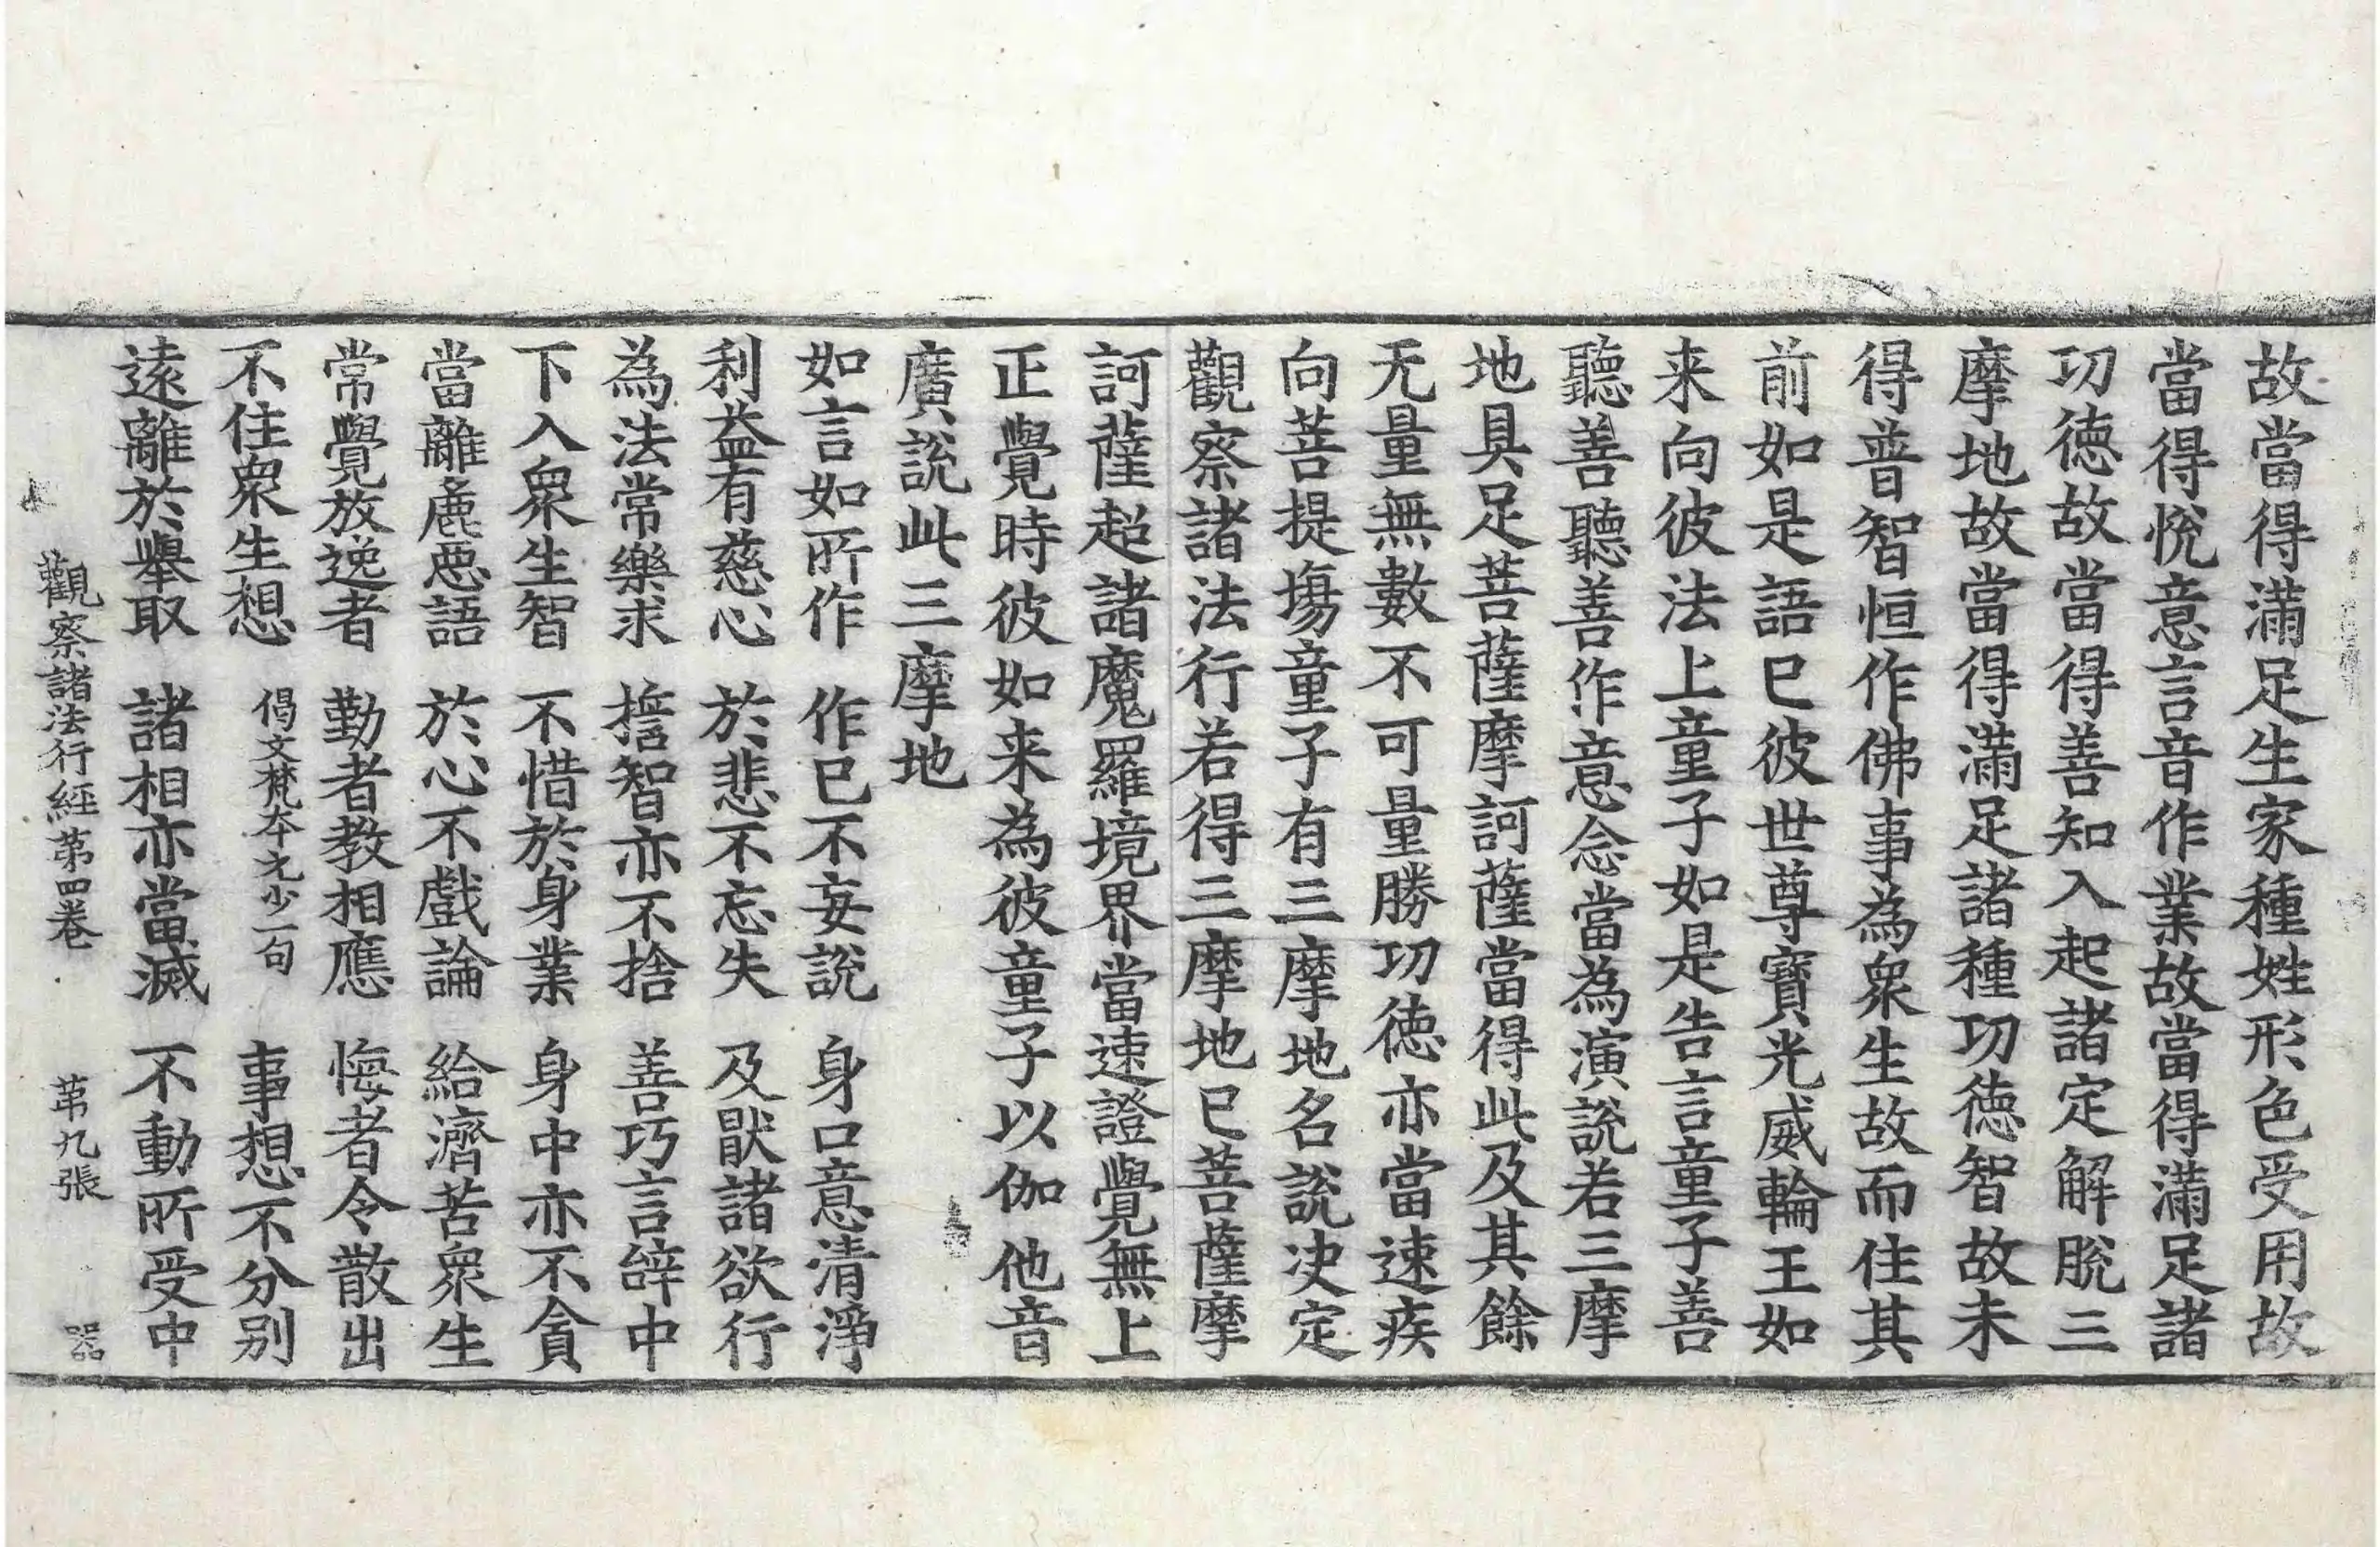 故當得滿足生家種姓形色受用故
當得悅意言音作業故當得滿足諸
功徳故當得善知入起諸定解脫三
摩地故當得滿足諸種功徳智故未
得普智恒作佛事為衆生故而住其
前如是語已彼世尊寶光威輪王如
来向彼法上童子如是告言童子善
聽善聽善作意念當為演說若三摩
地具足菩薩摩訶薩當得此及其餘
无量無數不可量勝功徳亦當速疾
向菩提場童子有三摩地名說决定
觀察諸法行若得三摩地已菩薩摩
訶薩超諸魔羅境界當速證覺無上
正覺時彼如来為彼童子以伽他音
廣說此三摩地
如言如所作　作已不妄說　身口意清淨
利益有慈心　於悲不忘失　及厭諸欲行
為法常樂求　擔智亦不捨　善巧言辝中
下入衆生智　不惜於身業　身中亦不貪
當離麁惡語　於心不戲論　給濟苦衆生
常覺放逸者　勤者教相應　悔者令散出
不住衆生想　偈文梵本元少一句　事想不分別
遠離於舉取　諸相亦當滅　不動所受中
觀察諸法行經第四卷　第九張　器